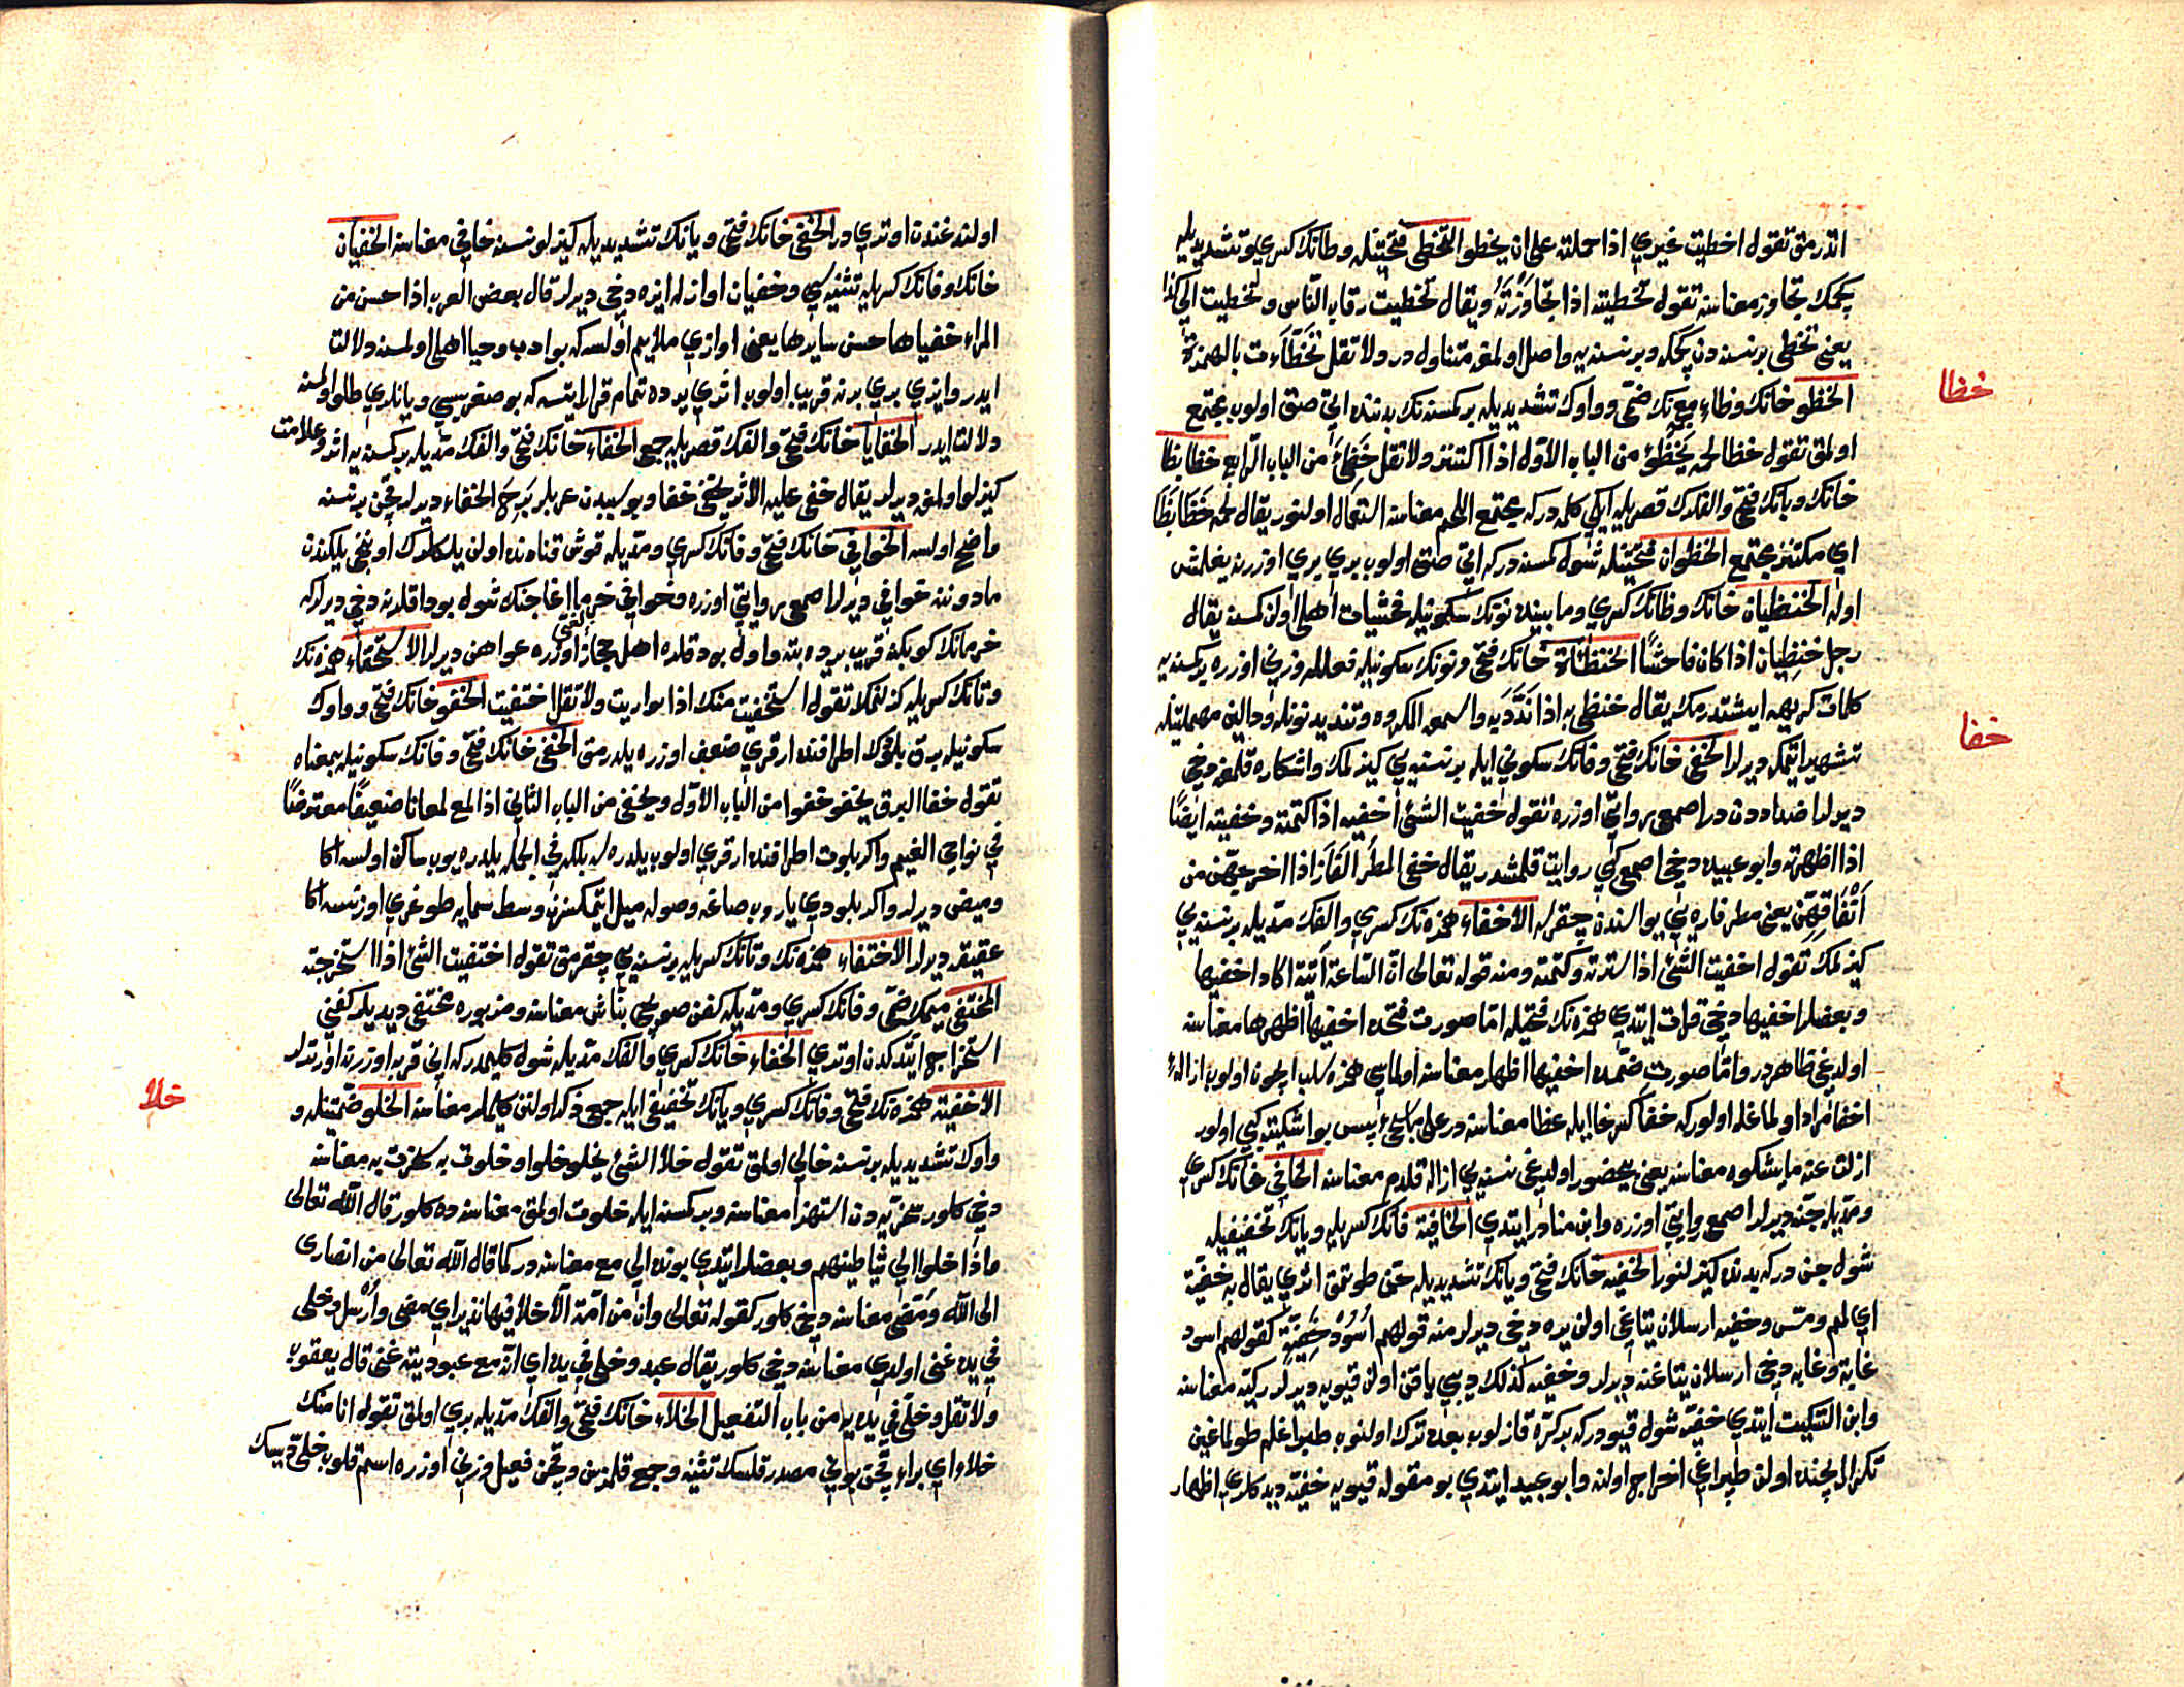 اتدرمق تقول اخطيت غيري اذا حملته على ان يخطو التخطى فتحتينله وطانك كسرى وتشديديله
كچمك تجاوز معناسنه تقول تخطيته اذا تجاوَزْتَهُ ويقال تخطيت رقاب الناس وتخطيت الى كذا
يعنى تخطى بر نسنه دن كچمكه وبر نسنه يه واصل اولمغه متناول در ولا تقل تَخَطَّأت بالهمزة
خظا
الخظو خانك وظاء معجمه نك ضمى وواوك تشديديله بر كمسنه نك بدننده اتى صقى اولوب مجتمع
اولمق تقول خظا لحمه يَخْظُو من الباب الاول اذا اكتنز ولا تقل خَظِىَ من الباب الرابع خظا بظا
خانك وبانك فتحى والفلرك قصريله ايكى كلمه در كه مجتمع اللحم معناسنه استعمال اولنور يقال لحمه خَظَا بَظَا
اى مكتنز مجتمع الخظوان فتحتينله شول كمسنه در كه اتى صقى اولوب برى برى اوزرينه يغلمش
اوله الخنظيان خانك وظانك كسرى ومابينده نونك سكونيله فحشيات اهلى اولن كمسنه يقال
رجل خنظيان اذا كان فاحشًا الخنظاة خانك فتحى ونونك سكونيله فعلله وزنى اوزره بر كمسنه يه
كلمات كريهه ايشتدرمك يقال خنظى به اذا نَدَّدَ به واسمعه المكروه وتنديد نونله ودالين مهملتينله
خفا
تشهير اتمكه ديرلر الخفى خانك فتحى وفانك سكونى ايله بر نسنه يى كيزلمك واشكاره قلمغه دخى
ديرلر اضداددن در اصمعى روايتى اوزره تقول خفيت الشئ اخفيه اذا كتمته وخفيته ايضًا
اذا اظهرته وابو عبيده دخى اصمعى كبى روايت قلمشدر يقال خفى المطر الفَارَ اذا اخرجهن من
اَنْفَاقِهِنّ يعنى مطر فاره يى يوالرندن چقردى الاخفاء همزه نك كسرى والفك مديله بر نسنه يى
كيزلمك تقول اخفيت الشئ اذا سترته وكتمته ومنه قوله تعالى ان الساعة آتية اكاد اخفيها
وبعضلر اخفيها دخى قرات ايتدى همزه نك فتحيله اما صورت فتحده اخفيها اظهرها معناسنه
اولدغى ظاهر در واما صورت ضمده اخفيها اظهار معناسنه اولماسى همزه سلب ايچون اولوب ازالۀ
اخفا مراد اولماغله اولور كه خفا كسر خا ايله غطا معناسنه در على ماسيجئ پس بو اشكيته كبى اولور
ازلت عنه مايشكوه معناسنه يعنى بيحضور اولدغى نسنه يى ازاله قلدم معناسنه الخافى خانك كسرى
ومديله جنه ديرلر اصمعى روايتى اوزره وابن مناذر ايتدى الخافية فانك كسريله ويانك تخفيفيله
شول جن در كه بدنده كيزلنور الخفيه خانك فتحى ويانك تشديديله جن طوتمق اثرى يقال به خفيّة
اى لمم ومسّ وخفيه ارسلان يتاغى اولن يره دخى ديرلر منه قولهم اُسُوْدُ خَفِيَّةٍ كقولهم اسود
غابة وغابه دخى ارسلان يتاغنه ديرلر وخفيه كذلك ديبى ياقن اولن قيويه ديرلر ركية معناسنه
وابن السكيت ايتدى خفيه شول قيودر كه بر كره قازلوب بعده ترك اولنوب طپراغله طولماغين
تكرار ايچنده اولن طپراغى اخراج اولنه وابو عبيد ايتدى بو مقوله قيويه خفيه ديدكلرى اظهار
اولندغندن اوتريدر الخفى خانك فتحى ويانك تشديديله كيزلو نسنه خافى معناسنه الخفيان
خانك وفانك كسريله تثنيه سى وخفيان اوازله ايزه دخى ديرلر قال بعض العرب اذا حسن من
المراة خفياها حسن سايرها يعنى اوازى ملايم اولسه كه بو ادب وحيا اهلى اولمسنه دلالت
ايدر وايزى برى برنه قريب اولوب اثرى يرده تمام قرار ايتسه كه بو صغريسى ويانلرى طلو اولمسنه
دلالت ايدر الخفايا خانك فتحى والفك قصريله جمع الخفاء خانك فتحى والفك مديله بر كمسنه يه اثر وعلامت
كيزلو اولمق ديرلر يقال خفى عليه الاثر يخفى خفا وبو سببدن عربلر بَرِحَ الخفاء ديرلر قچن بر نسنه
واضح اولسه الخوافى خانك فتحى وفانك كسرى ومديله قوش قنادنده اولن يلكلرك اوننجى يلكندن
مادوننه خوافى ديرلر اصمعى روايتى اوزره وخوافى خرما اغاجنك شول بوداقلرينه دخى ديرلر كه
خرمانك كوبكنه قريب يرده بته واول بوداقلره اهل حجاز لغتى اوزره عواهن ديرلر الاستخفاء همزه نك
وتانك كسريله كيزلنمك تقول استخفيت منك اذا تواريت ولا تقل اختفيت الخفو خانك فتحى وواوك
سكونيله برق بلوتك اطرافنده ارقرى ضعف اوزره يلدرمق الخفى خانك فتحى وفانك سكونيله بمعناه
تقول خفا البرق يخفو خفوا من الباب الاول ويخفى من الباب الثانى اذا لمع لمعانا ضعيفًا معترضًا
فى نواحى الغيم واكر بلوت اطرافنده ارقرى اولوب يلدرمه بلكه فى الجمله يلدره يوب ساكن اولسه اكا
وميض ديرلر واكر بلودى ياروب صاغه وصوله ميل ايتمكسزين وسط سمايه طوغرى اوزنسه اكا
عقيقه ديرلر الاختفاء همزه نك وتانك كسريله بر نسنه يى چقرمق تقول اختفيت الشئ اذا استخرجته
المختفى ميمك ضمى وفانك كسرى ومديله كفن صويجى نبّاش معناسنه ومزبوره مختفى ديديلر كفنى
استخراج ايتدكدن اوترى الخفاء خانك كسرى والفك مديله شول كليمدر كه انى قربه اوزرينه اورترلر
خلا
الاخفيه همزه نك فتحى وفانك كسرى ويانك تخفيفى ايله جمع ذكر اولنن كليملر معناسنه الخلو ضمتينله و
واوك تشديديله بر نسنه خالى اولمق تقول خلا الشئ يخلو خلوا وخلوت به سخرت به معناسنه
دخى كلور سخريه دن استهزا معناسنه وبر كمسنه ايله خلوت اولمق معناسنه ده كلور قال الله تعالى
واذا خلوا الى شياطينهم وبعضلر ايتدى بونده الى مع معناسنه در كما قال الله تعالى من انصارى
الى الله ومَضى معناسنه دخى كلور كقوله تعالى وان من امة الا خلا فيها نذير اى مضى وأرسل وخلى
فى يده غنى اولدى معناسنه دخى كلور يقال عبد وخلى فى يده اى انه مع عبوديته غنى قال يعقوب
ولا تقل وخلّى فى يديه من باب التفعيل الخلاء خانك فتحى والفك مديله برى اولمق تقول انا منك
خلاء اى براء قچن بونى مصدر قلسك تثنيه وجمع قلمزسن وقچن فعيل وزنى اوزره اسم قلوب خلىّ ديسك